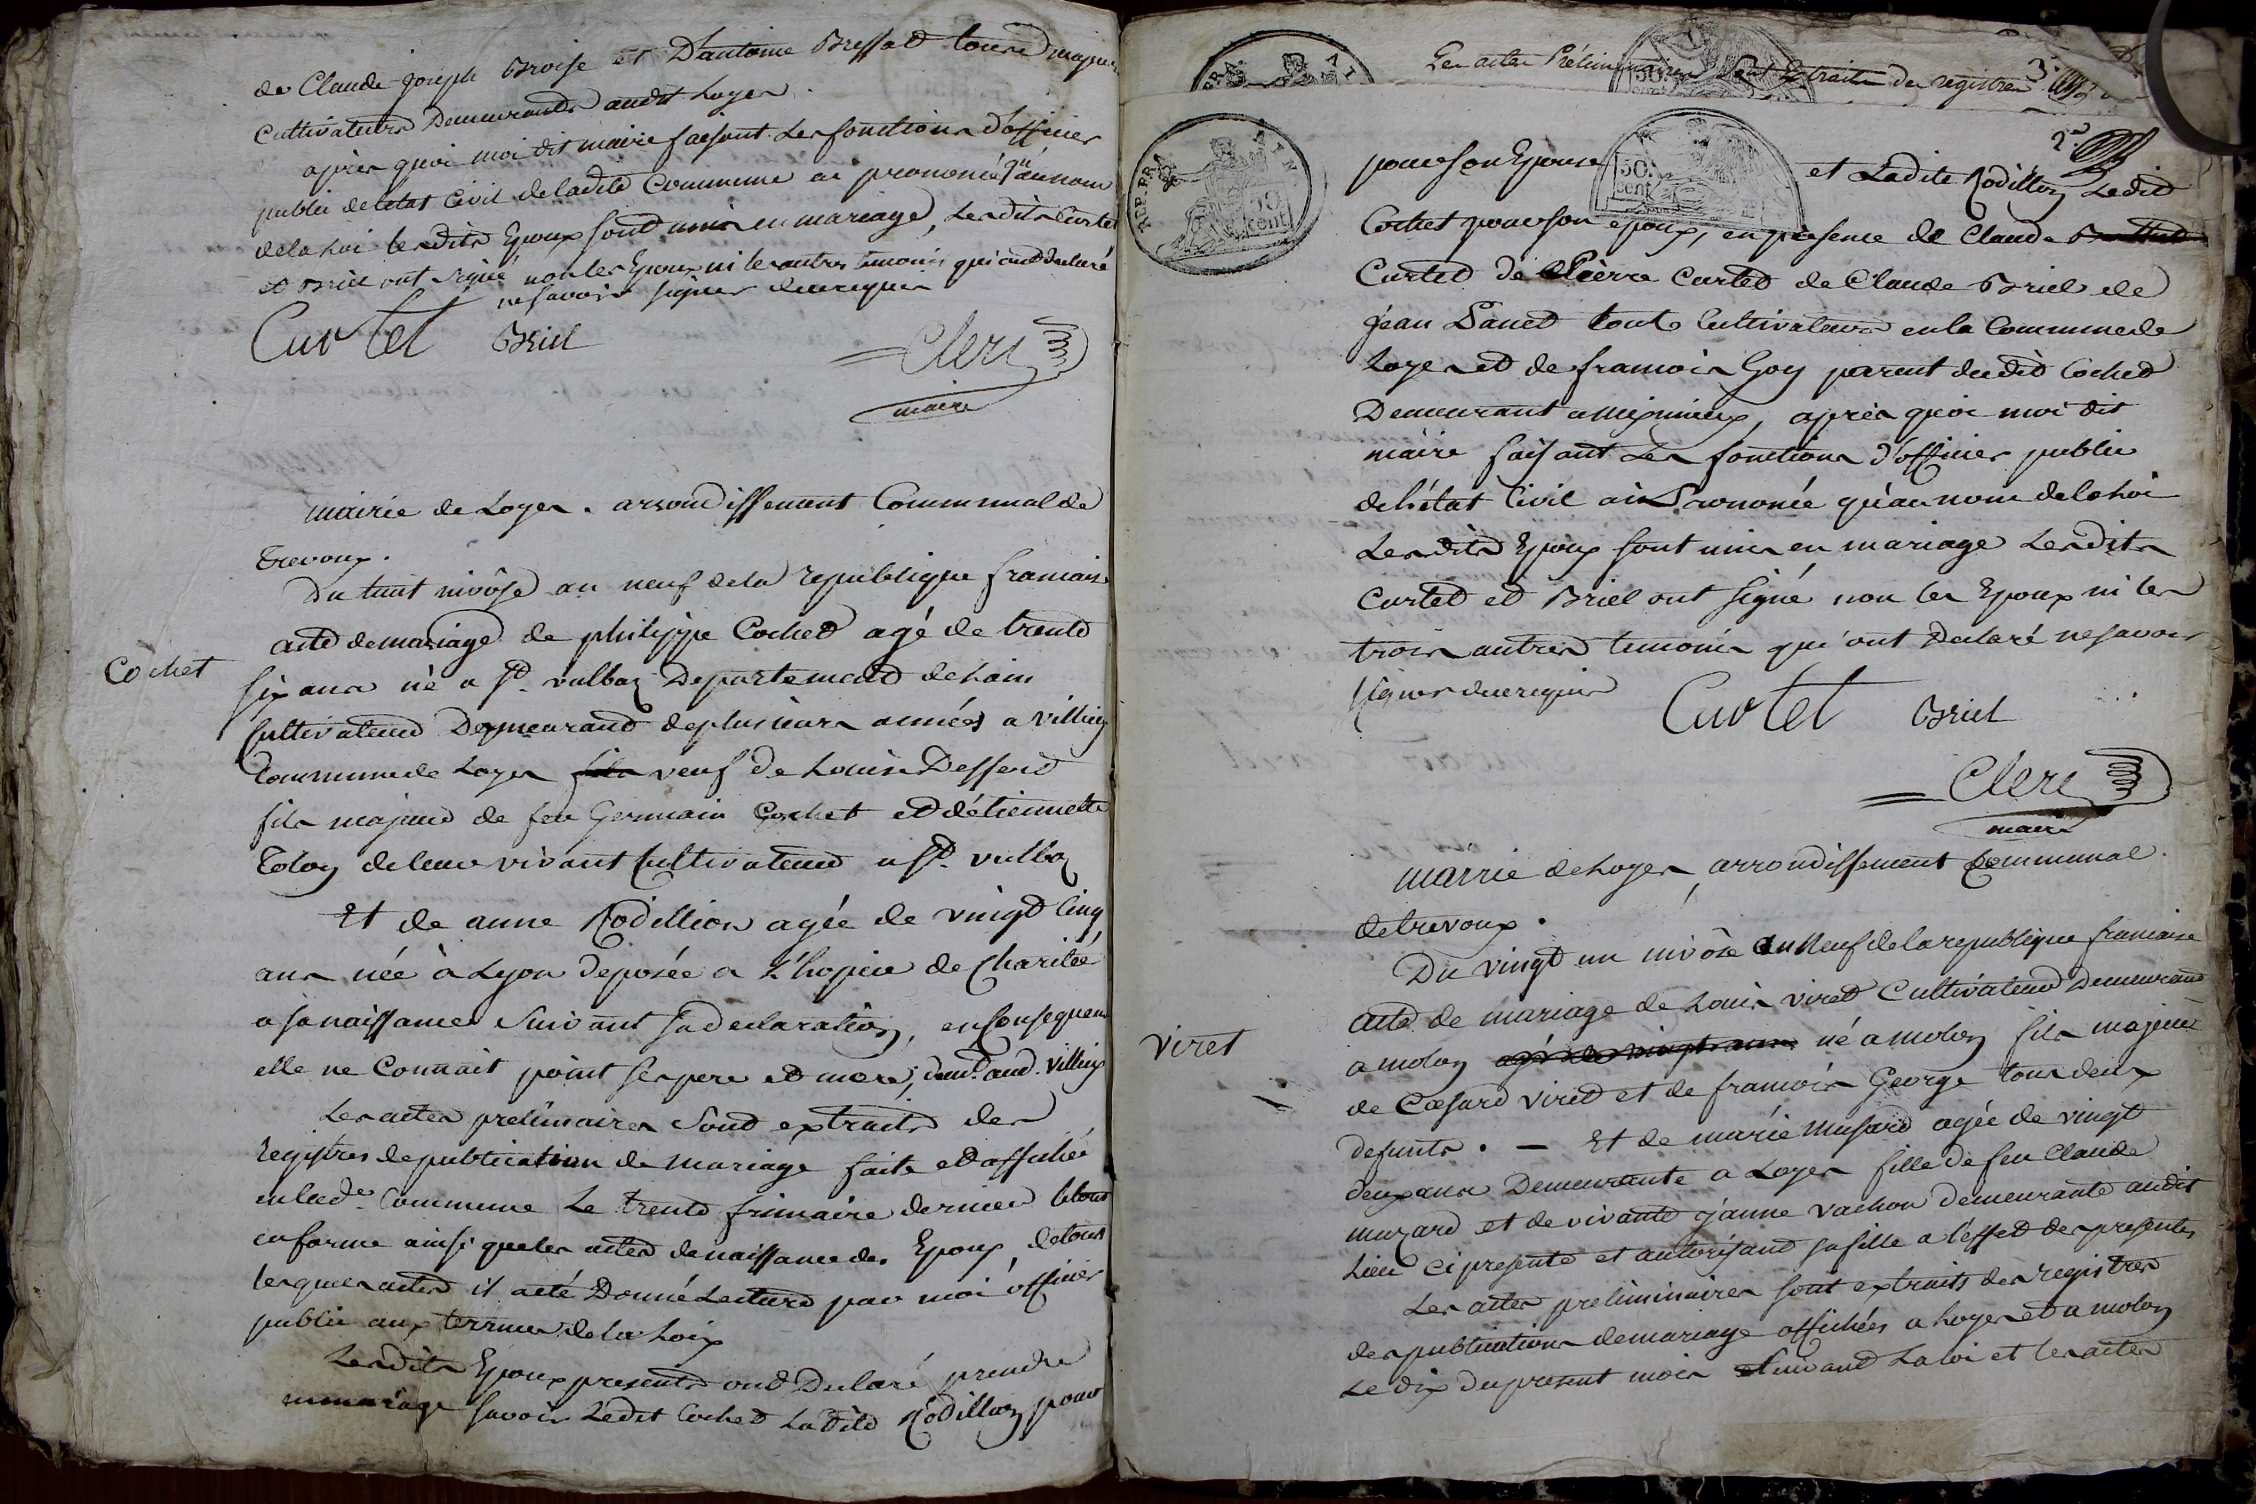 de Claude Joseph Broise et D'antoine Bressat tous majeurs
Cultivateurs Demeurants audit Loyes.
après quoi moi dit maire faisant Les fonctions d'officier
public de l'etat Civil de ladite Commune ai prononcé qu'au nom
de la Loi lesdits Epoux sont unis en mariage, Lesdits Curtet
et Briel ont signé non les Epoux ni les autres temoins qui ont declaré
ne savoir signer de ce requis
Curtet Briel
Clerc
maire
mairie de Loyes. arrondissement Communal de
Trevoux.
Du huit nivôse an neuf de la republique francaise
acte de mariage de philippe Cochet agé de trente
Cochet
six ans né a St. vulbaz Departement de Lain
Cultivateur Demeurant de plusieurs années a Villieu
Commune de Loyes fils veuf de Louise Desseid
fils majeur de feu Germain Cochet et d'étiennette
Toloy de leur vivant Cultivateurs a St. vulbaz
Et de anne Rodillion agée de vingt Cinq
ans née à Lyon deposée a L'hopice de Charitéé
a sa naissance Suivant sa declaration, en Consequence
elle ne Connait point ses pere et mere, demt. aud. Villieu
Les actes preliminaires Sont extraits des
registres de publication de mariage faite et affichée
en lade. Commune Le trente frimaire dernier le tout
en forme ainsi que les actes de naissance des Epoux, de tous
lesquels actes il a été Donné Lecture par moi officier
public aux termes de la Loix
Lesdits Epoux presents ont Declaré prendre
en mariage savoir Ledit Cochet La dite Rodillion pour
Les actes Préliminaires Sont Extraits des registres
3.
2e
pour son Epouse et Ladite Rodillion Ledit
Cochet pour son epoux, en presence de Claude
Curtet de Pierre Curtet de Claude Briel de
Jean Danet tous Cultivateurs en la Commune de
Loyes et de francois Goy parent dudit Cochet
Demeurant a Meximieux, après quoi moi dit
maire faisant Les fonctions d'officier public
de l'état Civil ai Prononcé qu'au nom de la Loi
Lesdits Epoux sont unis en mariage Lesdits
Curtet et Briel ont signé non les Epoux ni les
trois autres temoins qui ont Declaré ne savoir
signer de ce requis
Curtet Briel
Clerc
maire
mairie de Loyes, arrondissement Communal
de trevoux.
Du vingt un nivôse an Neuf de la republique francaise
acte de mariage de Louis viret Cultivateur Demeurant
Viret
a molon agé de vingt ans né a molon fils majeur
de Cæsard viret et de francoise George tous deux
defunts. — Et de marie Musard agée de vingt
deux ans Demeurante a Loyes fille de feu Claude
muzard et de vivante Jânne vachon demeurante audit
Lieu ci presente et autorisant sa fille a l'effet des presentes
Les actes preliminaires sont extraits des registres
des publications de mariage affichées a Loyes et a molon
Le dix du present mois Suivant La loi et les actes